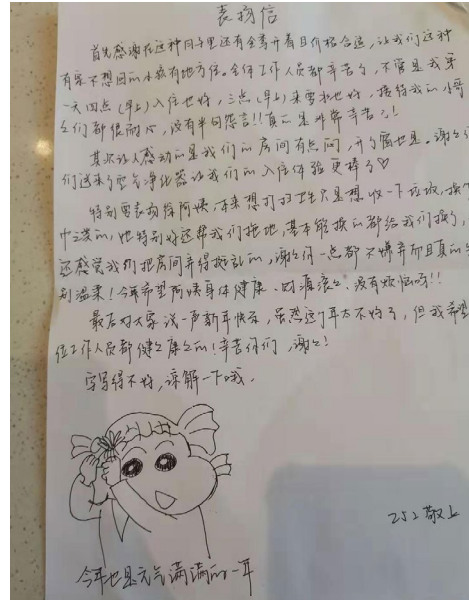 表扬信
首先感谢在这种日子里还有全季开着且价格合适,让我们这种
有家不想回的小孩有地方住。全体工作人员都辛苦了,不管是我第
一天四点(早上)入住也好,三点(早上)来要水也好,接待我的小哥
哥们都很耐心,没有半句怨言!!真的是非常辛苦了!
其次让人感动的是我们的房间有点闷,开了窗也是。谢谢你
们送来了空气净化器让我们的入住体验更棒了♡
特别要表扬保洁阿姨,本来想打扫卫生只是想收一下垃圾,换
的,她特别好还帮我们拖地,基本能换的都给我们换了,
还感觉我们把房间弄得挺乱的,谢谢你一点都不嫌弃而且真的
别温柔!今年希望阿姨身体健康、财源滚滚、没有烦恼呀!!
最后对大家说一声新年快乐,虽然这个年太不好了,但我希望
位工作人员都健健康康的!辛苦你们,谢谢!
字写得不好,谅解一下哦。
252 敬上
今年也是元气满满的一年